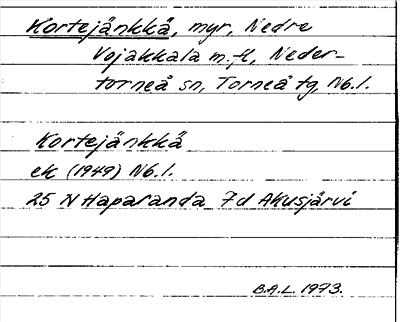 Kortejänkkä, myr, Nedre
Vojakkala m.fl., Neder-
torneå sn, Torneå tg, Nb.l.
Kortejänkkä
ek (1949) Nb.l.
25 N Haparanda 7d Akusjärvi
B.A.L. 1973.